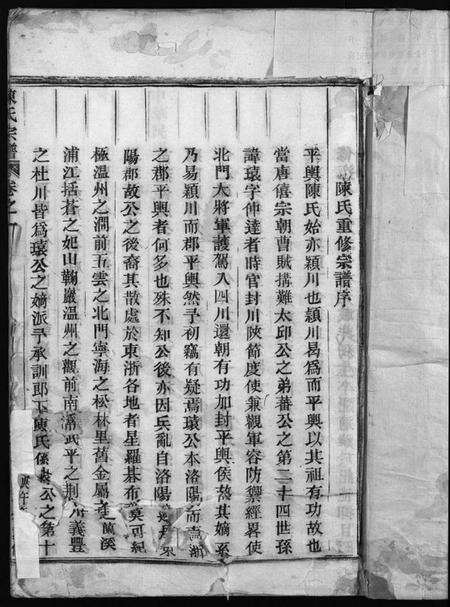 陳氏重修宗譜序
平輿陳氏始亦潁川也潁川曷為而平輿以其祖有功故也
當唐僖宗朝曹賊搆難太邱公之弟蕃公之第二十四世孫
諱瓌字伸達者時官封川陝節度使兼觀軍容防禦經畧使
北門大將軍護駕入四川還朝有功加封平輿侯茲其嫡系
乃易潁川而郡平輿然予初竊有疑焉瓌公本洛陽而
之郡平輿者何多也殊不知公後亦因兵亂自洛陽
陽郡故公之後裔其散處於東浙各地者星羅碁布莫可紀
極温州之澗前五雲之北門寧海之松林里舊金屬之溪
浦江括蒼之妃山鞠巖温州之觀前南溪武平之荆川義豐
之杜川皆為瓌公之嫡派予承訓郎下陳氏係公之第十
陳氏宗譜
卷之一